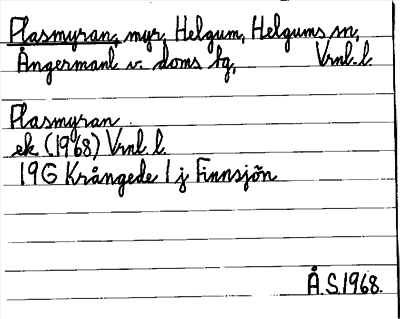 Plasmyran, myr, Helgum, Helgums sn,
Ångermanl v. doms hg, Vrnl. l.
Plasmyran
ek. (1968) Vrnl. l.
19G Krångede 1 j Finnsjön
Å.S. 1968.